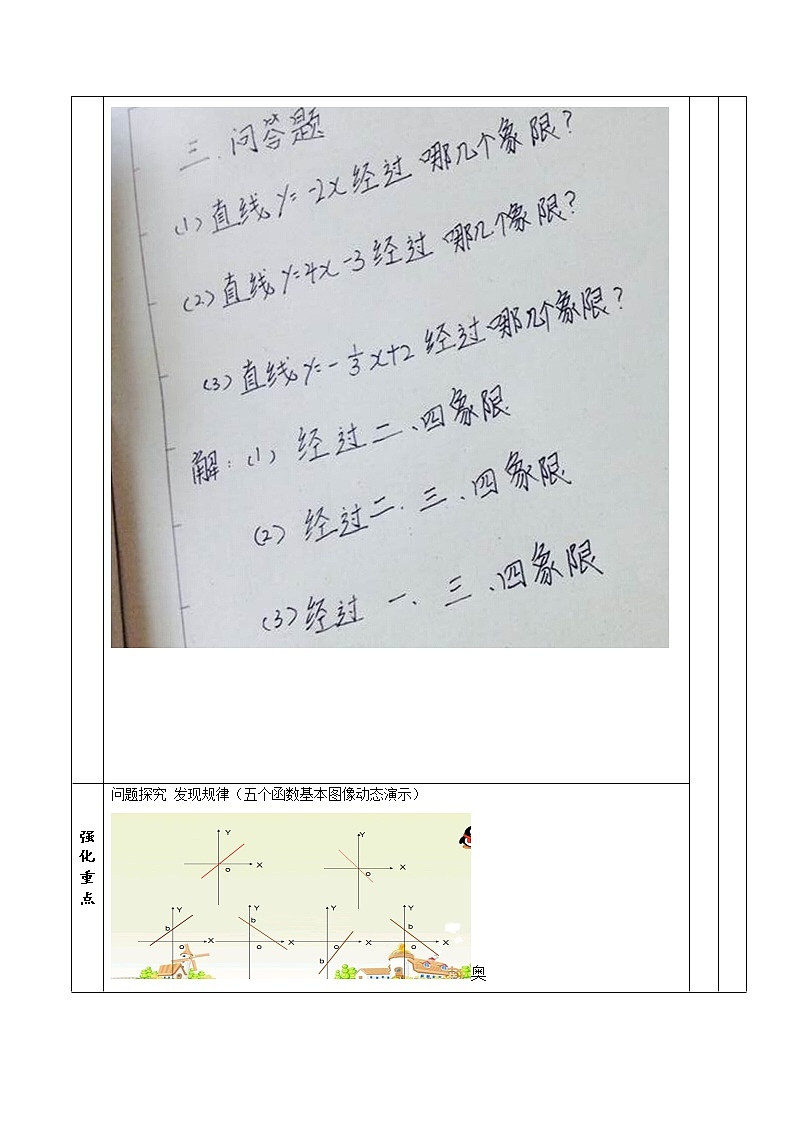 三、问答题
(1)直线y=-2x经过哪几个象限?
(2)直线y=4x-3经过哪几个象限?
(3)直线y=-1/3x+2经过哪几个象限?
解:(1)经过二、四象限
(2)经过二、三、四象限
(3)经过一、三、四象限
问题探究 发现规律(五个函数基本图像动态演示)
强化重点
Y
X
O
Y
X
O
Y
b
X
O
Y
b
X
O
Y
X
O
b
Y
b
X
O
奥